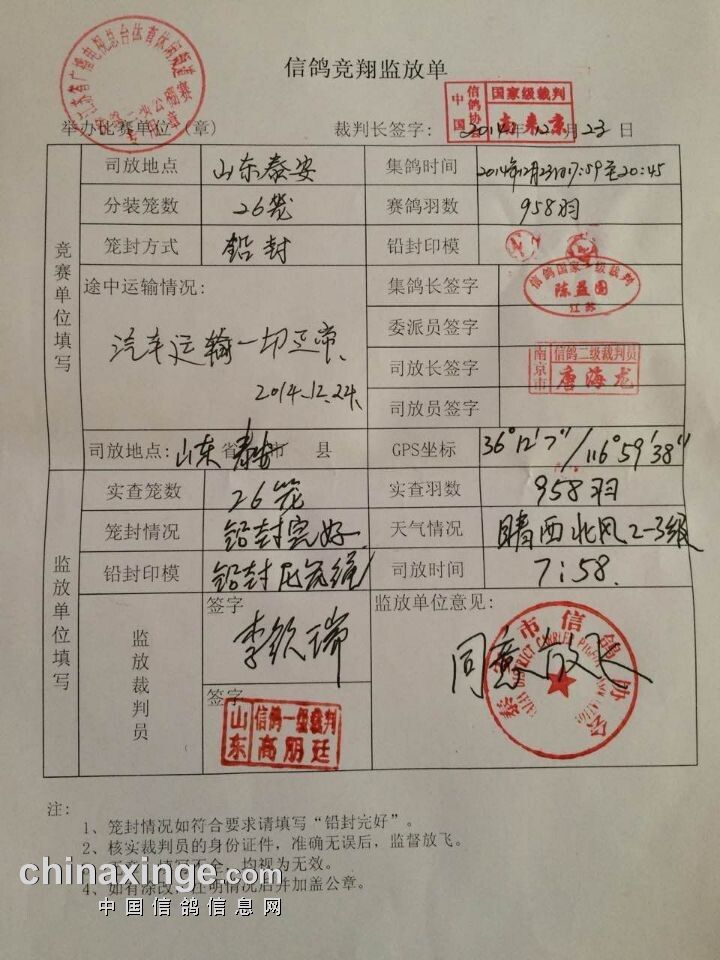 信鸽竞翔监放单
举办比赛单位(章)
裁判长签字:
中国信鸽协
国家级裁判
2014年12月23日
竞赛单位填写
司放地点 山东泰安 集鸽时间 2014年12月23日17:59至20:45
分装笼数 26笼 赛鸽羽数 958羽
笼封方式 铅封 铅封印模
途中运输情况:
汽车运输一切正常.
2014.12.24.
集鸽长签字
信鸽国家级裁判
陈益国
江苏
委派员签字
司放长签字
南京市
信鸽二级裁判员
唐海龙
司放员签字
司放地点: 山东省泰安市 县 GPS坐标 36°12'7"/116°59'38"
监放单位填写
实查笼数 26笼 实查羽数 958羽
笼封情况 铅封完好. 天气情况 晴西北风2-3级
铅封印模 铅封尼龙绳 司放时间 7:58.
监放裁判员
签字
李钦瑞
签字
山东
信鸽一级裁判
高朋廷
监放单位意见:
同意放飞
市信鸽协会
注:
1、笼封情况如符合要求请填写“铅封完好”。
2、核实裁判员的身份证件，准确无误后，监督放飞。
填写不全，均视为无效。
4、如有涂改，注明情况后并加盖公章。
chinaxinge.com
中国信鸽信息网